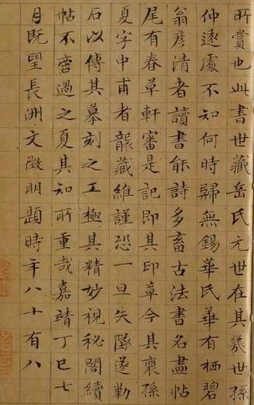 所賞也此書世藏岳氏元世在其幾世孫
仲遠處不知何時歸無錫華氏華有栖碧
翁彦清者讀書能詩多畜古法書名畫帖
尾有春草軒審是記即其印章今其裔孫
夏字中甫者襲藏維謹恐一旦失墜遂勒
石以傳其摹刻之工極其精妙視秘閣續
帖不啻過之夏其知所重哉嘉靖丁巳七
月既望長洲文徵明題時年八十有八